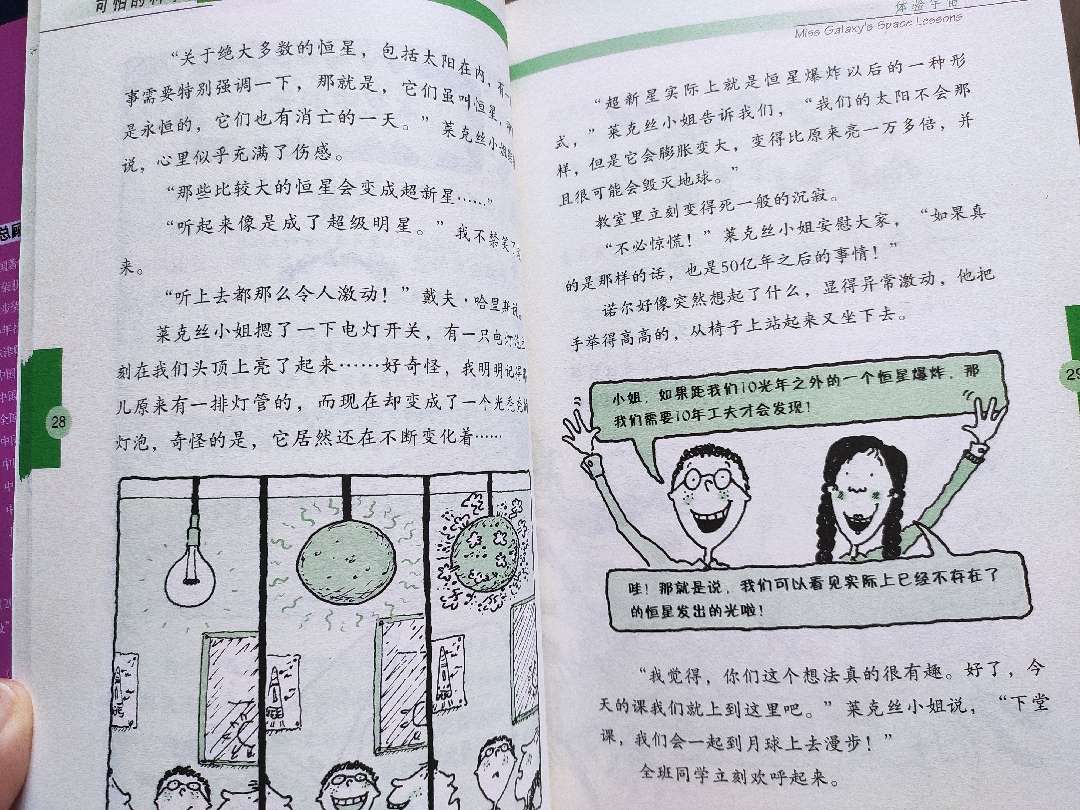 可怕的科学
“关于绝大多数的恒星，包括太阳在内，有一
事需要特别强调一下，那就是，它们虽叫恒星，
是永恒的，它们也有消亡的一天。”莱克丝小姐
说，心里似乎充满了伤感。
“那些比较大的恒星会变成超新星……”
“听起来像是成了超级明星。”我不禁笑了
来。
“听上去都那么令人激动！”戴夫·哈里斯说。
莱克丝小姐摁了一下电灯开关，有一只电灯
刻在我们头顶上亮了起来……好奇怪，我明明记得
儿原来有一排灯管的，而现在却变成了一个光秃秃的
灯泡，奇怪的是，它居然还在不断变化着……
28
体验宇宙
Miss Galaxy's Space Lessons
“超新星实际上就是恒星爆炸以后的一种形
式，”莱克丝小姐告诉我们，“我们的太阳不会那
样，但是它会膨胀变大，变得比原来亮一万多倍，并
且很可能会毁灭地球。”
教室里立刻变得死一般的沉寂。
“不必惊慌！”莱克丝小姐安慰大家，“如果真
的是那样的话，也是50亿年之后的事情！”
诺尔好像突然想起了什么，显得异常激动，他把
手举得高高的，从椅子上站起来又坐下去。
小姐，如果距我们10光年之外的一个恒星爆炸，那
我们需要10年工夫才会发现！
哇！那就是说，我们可以看见实际上已经不存在了
的恒星发出的光啦！
“我觉得，你们这个想法真的很有趣。好了，今
天的课我们就上到这里吧。”莱克丝小姐说，“下堂
课，我们会一起到月球上去漫步！”
全班同学立刻欢呼起来。
29